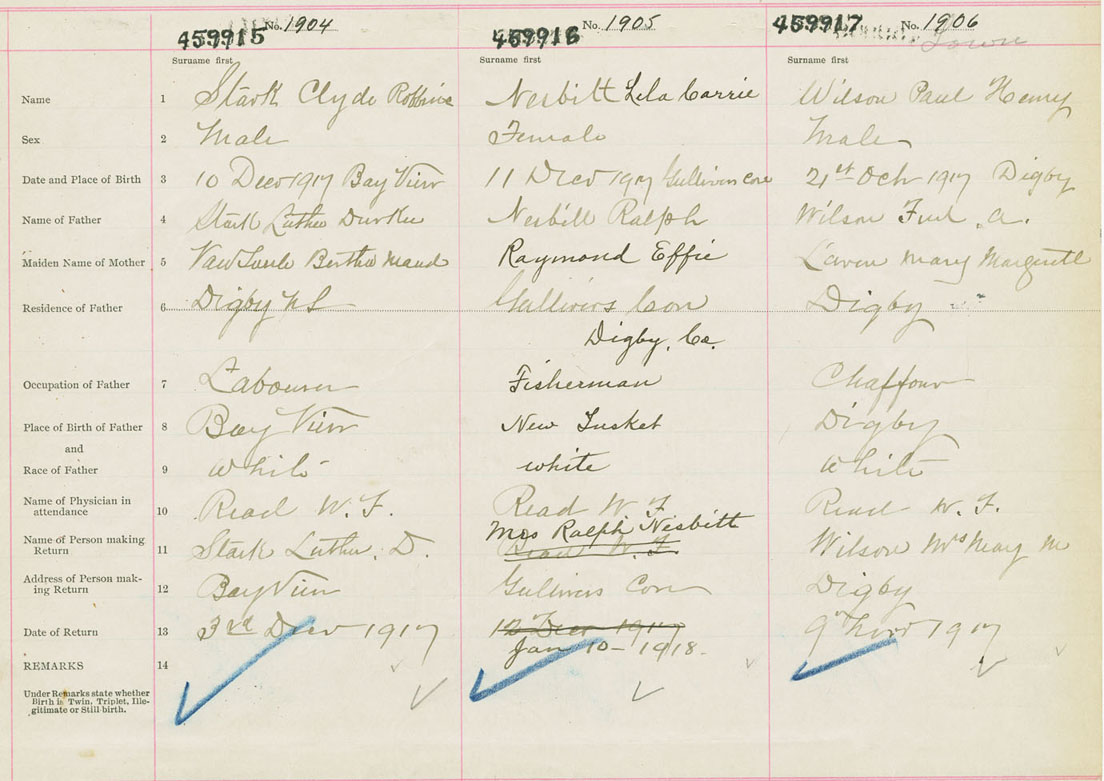 459915 No. 1904 459916 No. 1905 459917 No. 1906
Town
Surname first Surname first Surname first
Name 1 Stark Clyde Robbins Nesbitt Lela Carrie Wilson Paul Henry
Sex 2 Male Female Male
Date and Place of Birth 3 10 Decr 1917 Bay View 11 Decr 1917 Gullivers Cove 21st Oct 1917 Digby
Name of Father 4 Stark Luther Durkee Nesbitt Ralph Wilson A.
Maiden Name of Mother 5 Bertha Maud Raymond Effie Mary
Residence of Father 6 Digby NS Gullivers Cove Digby
Digby, Co.
Occupation of Father 7 Labourer Fisherman Chaffour
Place of Birth of Father 8 Bay View New Tusket Digby
and
Race of Father 9 White white White
Name of Physician in
attendance 10 Read W. F. Read W. F. Read W. F.
Mrs Ralph Nesbitt
Name of Person making
Return 11 Stark Luther. D. Read W. F. Wilson Mrs Mary M
Address of Person mak-
ing Return 12 Bay View Gullivers Cove Digby
Date of Return 13 3rd Decr 1917 12 Decr 1917 9th Novr 1917
Jan 10 - 1918.
REMARKS 14
Under Remarks state whether
Birth is Twin, Triplet, Ille-
gitimate or Still birth.